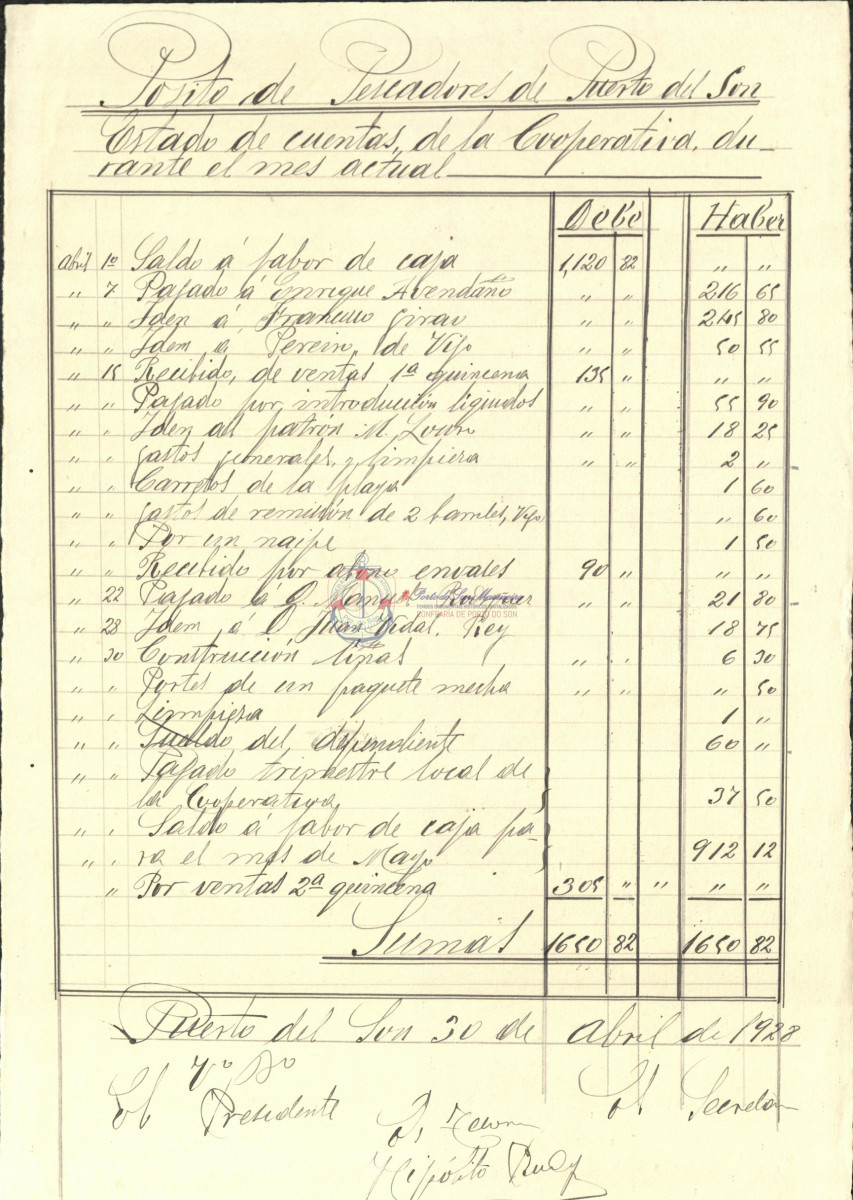 Posito de Pescadores de Puerto del Son
Estado de cuentas, de la Cooperativa, du-
rante el mes actual
Debe Haber
Abril 1º Saldo á fabor de caja 1,120 82 „ „
„ 7 Pagado á Enrique Avendaño „ „ 216 65
„ „ Iden á Francisco Giráu „ „ 245 80
„ „ Idem a Pereira, de Vigo „ „ 50 55
„ 15 Recibido, de ventas 1ª quincena 135 „ „ „
„ „ Pagado por introducción liquidos „ „ 55 90
„ „ Iden al patrón M. „ „ 18 25
„ „ Gastos generales, y limpiesa „ „ 2 „
„ „ Carretos de la playa 1 60
„ „ Gastos de remisión de 2 barriles, Vigo „ 60
„ „ Por un naipe 1 50
„ „ Recibido por abono envales 90 „ „ „
„ 22 Pagado a D. Manuel „ „ 21 80
„ 28 Idem á D Juan Vidal Rey 18 75
„ 30 Construcción tiñas „ „ 6 30
„ „ Portes de un paquete mecha „ „ „ 50
„ „ Limpiesa 1 „
„ „ Sueldo del dependiente 60 „
„ „ Pagado trimestre local de
la Cooperativa 37 50
„ „ Saldo á fabor de caja pa-
„ „ ra el mes de Mayo 912 12
„ Por ventas 2ª quincena 305 „ „ „ „
Sumas 1650 82 1650 82
Puerto del Son 30 de Abril de 1928
Vº Bº
El Presidente
El Secretar
Hipólito
Porto do Son
CONFRARIA DE PORTO DO SON